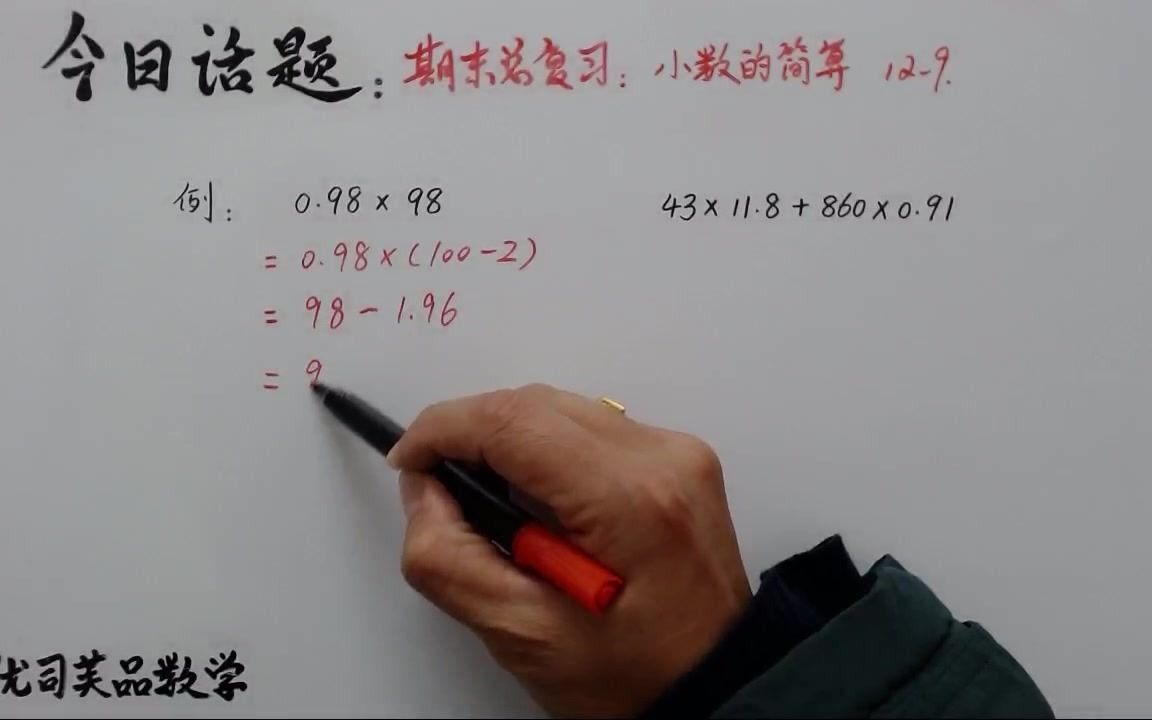 今日话题：期末总复习：小数的简算 12-9.
例： 0.98 × 98
= 0.98×(100-2)
= 98 - 1.96
= 9
43×11.8+860×0.91
优司芙品数学